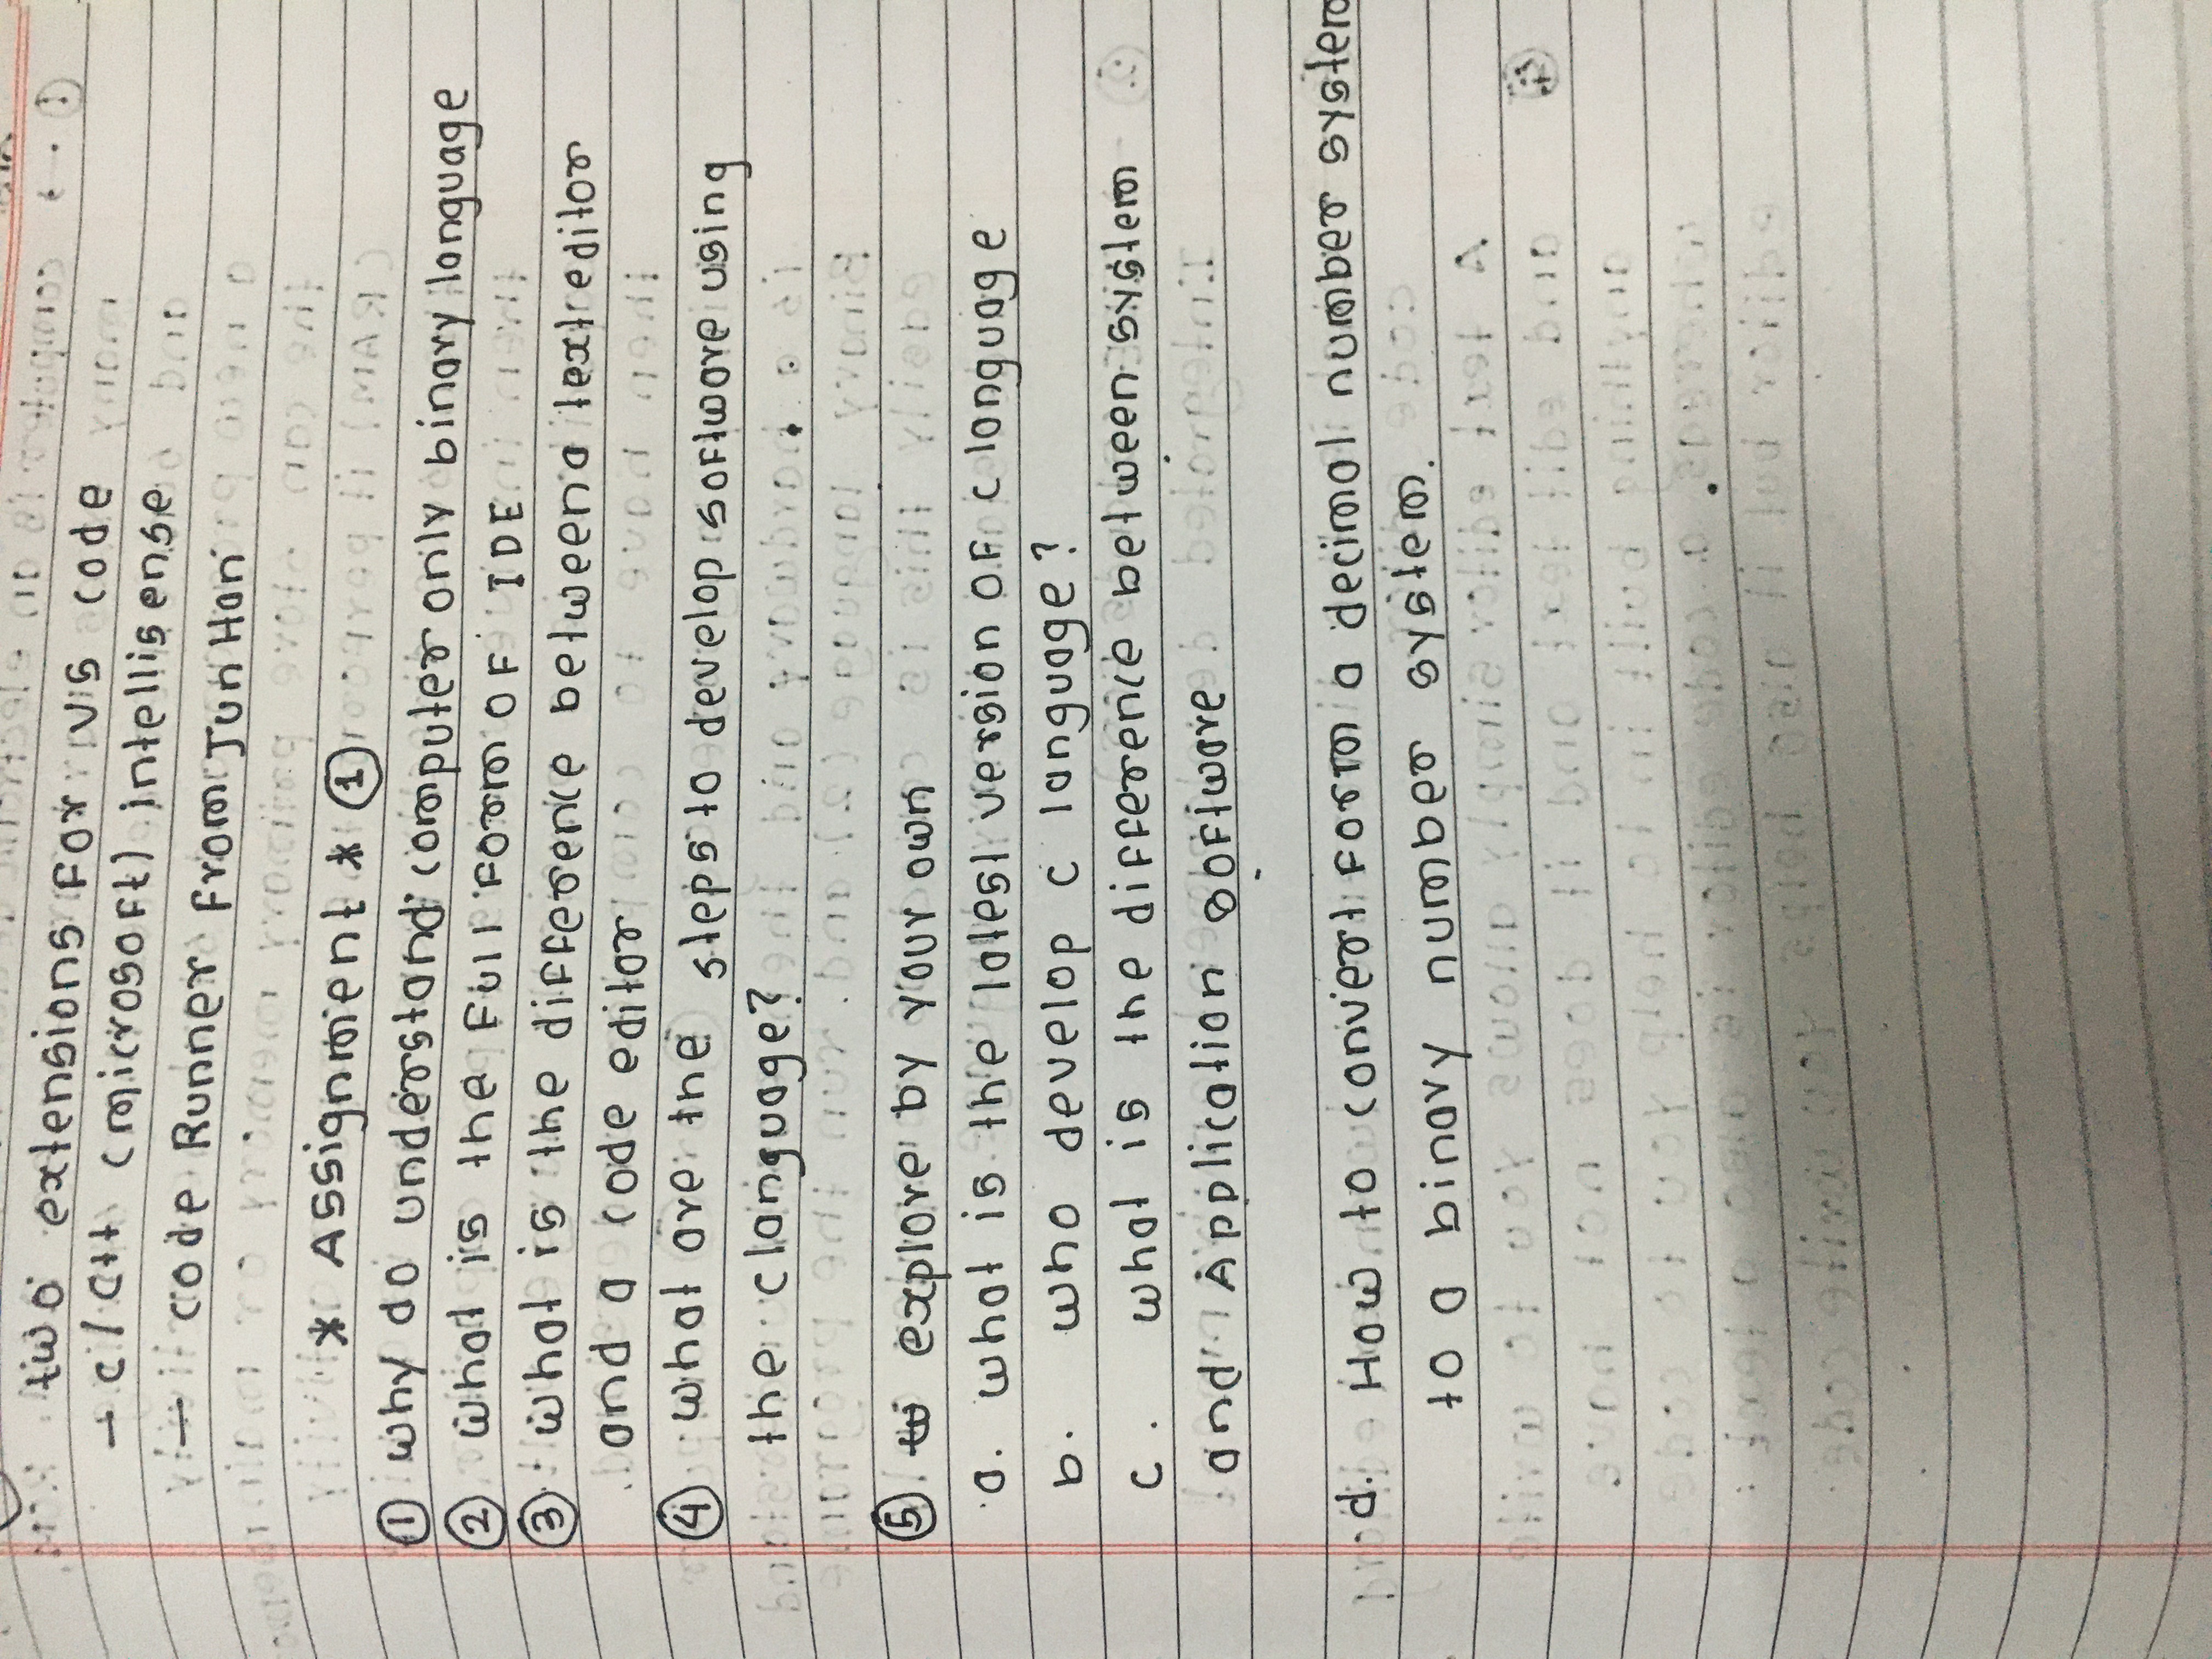 two extensions For VS code
- C/C++ (microsoft) intellisense
- code Runner From Jun Han
* Assignment * ①
① why do understand computer only binary language
② what is the Full Form OF IDE
③ what is the difference between a text editor
and a code editor
④ what are the steps to develop software using
the c language?
⑤ explore by your own
a. what is the latest version OF c language
b. who develop c language?
c. what is the difference between system
and Application software
d. How to convert form a decimal number system
to a binary number system.